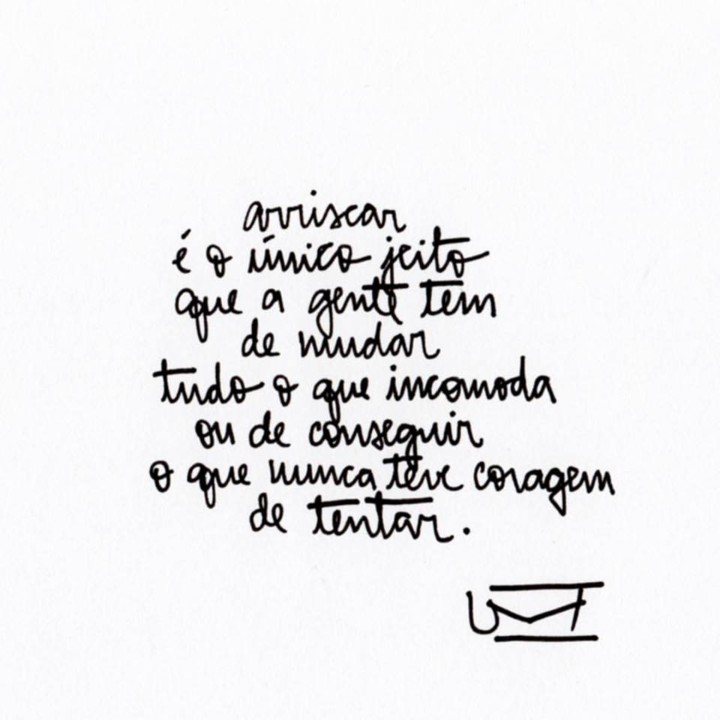 arriscar
é o único jeito
que a gente tem
de mudar
tudo o que incomoda
ou de conseguir
o que nunca teve coragem
de tentar.